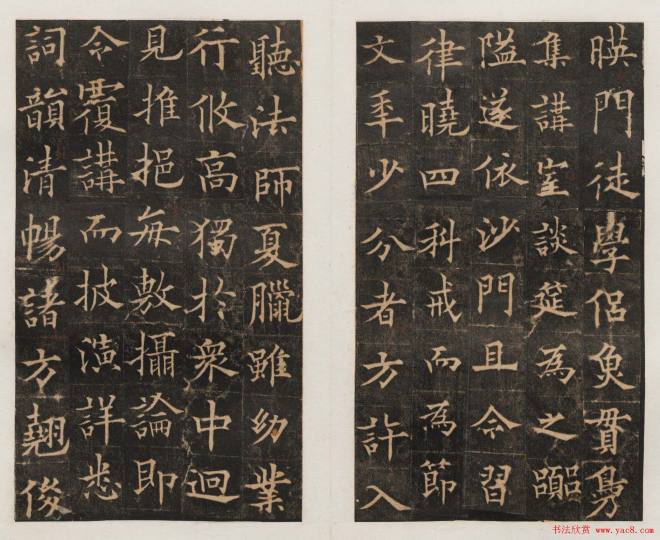 暎門徒學侶魚貫鳧
集講室談筵為之嚻
隘遂依沙門且令習
律曉四科戒而為節
文年少分者方許入
聽法師夏臘雖幼業
行攸高獨於衆中迥
見推挹每敷攝論即
令覆講而披演詳悉
詞韻清暢諸方翹俊
书法欣赏 www.yac8.com